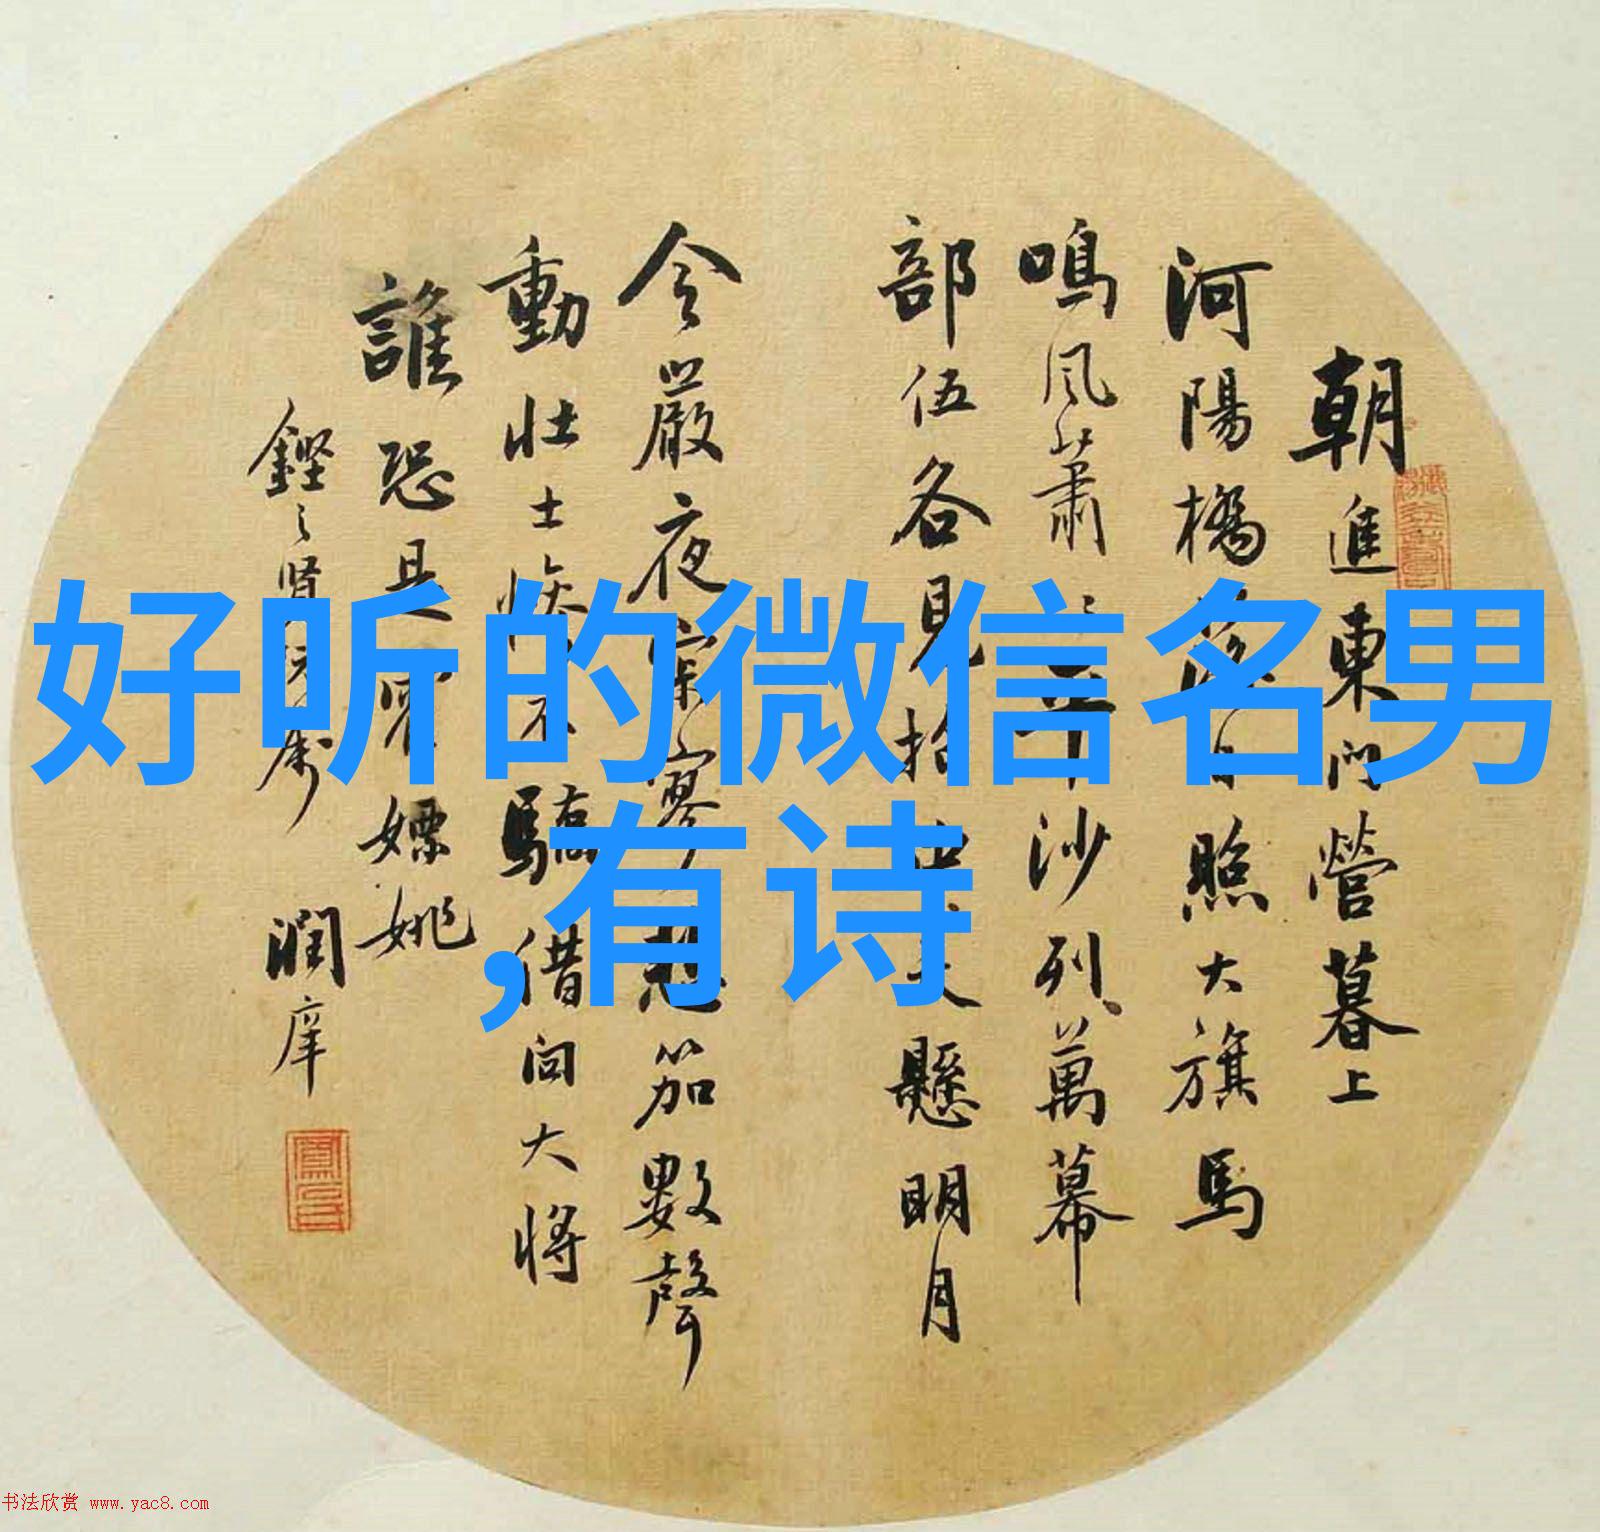 好听的微信名男
,有诗
朝進東門營暮上
河陽橋落日照大旗馬
鳴風蕭〻平沙列萬幕
部伍各見招中天懸明月
令嚴夜寂寥悲笳數聲
動壯士慘不驕借問大將
誰恐是霍嫖姚
潤庠
书法欣赏 www.yac8.com